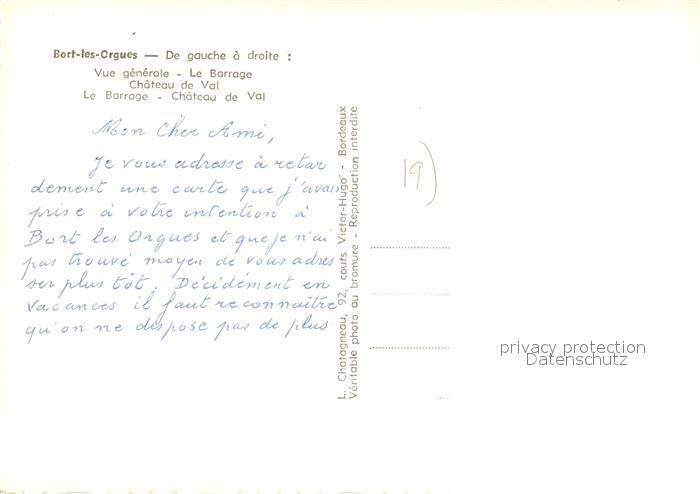 Bort-les-Orgues — De gauche à droite :
Vue générale - Le Barrage
Château de Val
Le Barrage - Château de Val
Mon Cher Ami,
Je vous adresse à retar
dement une carte que j'avais
prise à votre intention à
Bort les Orgues et que je n'ai
pas trouvé moyen de vous adres
ser plus tôt. Décidément en
vacances il faut reconnaître
qu'on ne dispose pas de plus
L. Chatagneau, 92, cours Victor-Hugo - Bordeaux
Véritable photo au bromure - Reproduction interdite
19)
privacy protection
Datenschutz